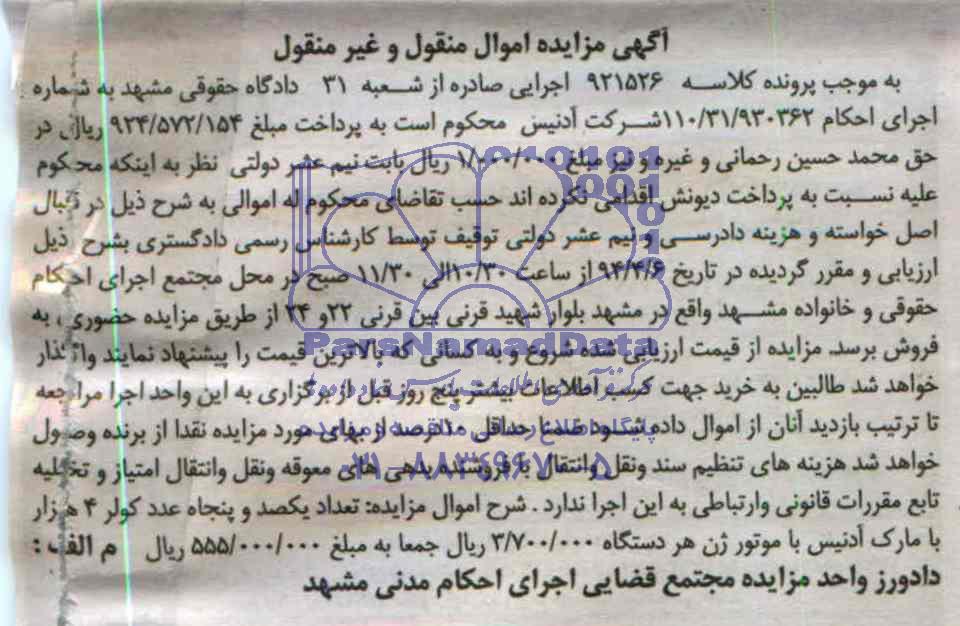 آگهی مزایده اموال منقول و غیر منقول
به موجب پرونده کلاسه ۹۲۱۵۲۶ اجرایی صادره از شعبه ۳۱ دادگاه حقوقی مشهد به شماره
اجرای احکام ۱۱۰/۳۱/۹۳۰۳۶۲ شرکت آدنیس محکوم است به پرداخت مبلغ ۹۲۴/۵۷۲/۱۵۴ ریال در
حق محمد حسین رحمانی و غیره و نیز مبلغ ۱/۰۰۰/۰۰۰ ریال بابت نیم عشر دولتی نظر به اینکه محکوم
علیه نسبت به پرداخت دیونش اقدامی نکرده اند حسب تقاضای محکوم له اموالی به شرح ذیل در قبال
اصل خواسته و هزینه دادرسی و نیم عشر دولتی توقیف توسط کارشناس رسمی دادگستری بشرح ذیل
ارزیابی و مقرر گردیده در تاریخ ۹۴/۴/۶ از ساعت ۱۰/۳۰ الی ۱۱/۳۰ صبح در محل مجتمع اجرای احکام
حقوقی و خانواده مشهد واقع در مشهد بلوار شهید قرنی بین قرنی ۲۲و ۲۴ از طریق مزایده حضوری به
فروش برسد. مزایده از قیمت ارزیابی شده شروع و به کسانی که بالاترین قیمت را پیشنهاد نمایند واگذار
خواهد شد طالبین به خرید جهت کسب اطلاعات بیشتر پنج روز قبل از برگزاری به این واحد اجرا مراجعه
تا ترتیب بازدید آنان از اموال داده شود ضمنا حداقل ۱۰ درصد از بهای مورد مزایده نقدا از برنده وصول
خواهد شد هزینه های تنظیم سند ونقل وانتقال با فروشنده بدهی های معوقه ونقل وانتقال امتیاز و تخلیه
تابع مقررات قانونی وارتباطی به این اجرا ندارد . شرح اموال مزایده: تعداد یکصد و پنجاه عدد کولر ۴ هزار
با مارک آدنیس با موتور ژن هر دستگاه ۳/۷۰۰/۰۰۰ ریال جمعا به مبلغ ۵۵۵/۰۰۰/۰۰۰ ریال م الف :
دادورز واحد مزایده مجتمع قضایی اجرای احکام مدنی مشهد
ParsNamadData
۰۲۱-۸۸۳۴۹۶۷۰-۵